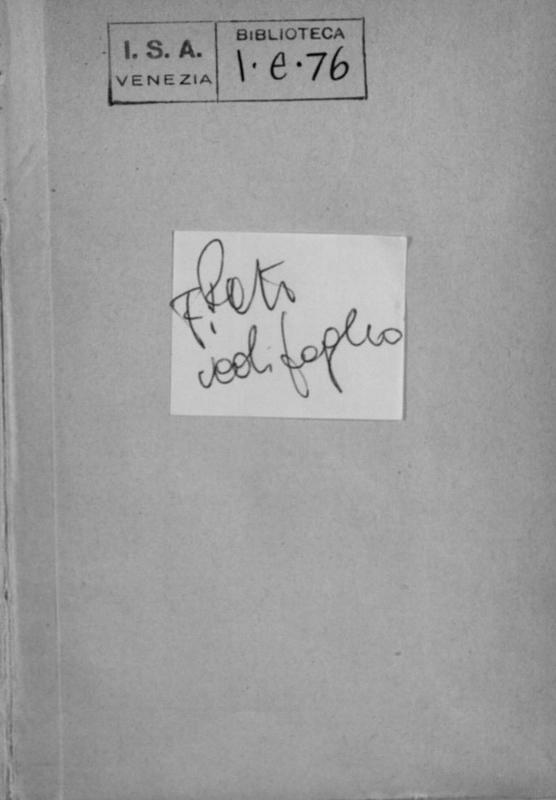 I. S. A.
VENEZIA
BIBLIOTECA
1·e·76
vedi foglio